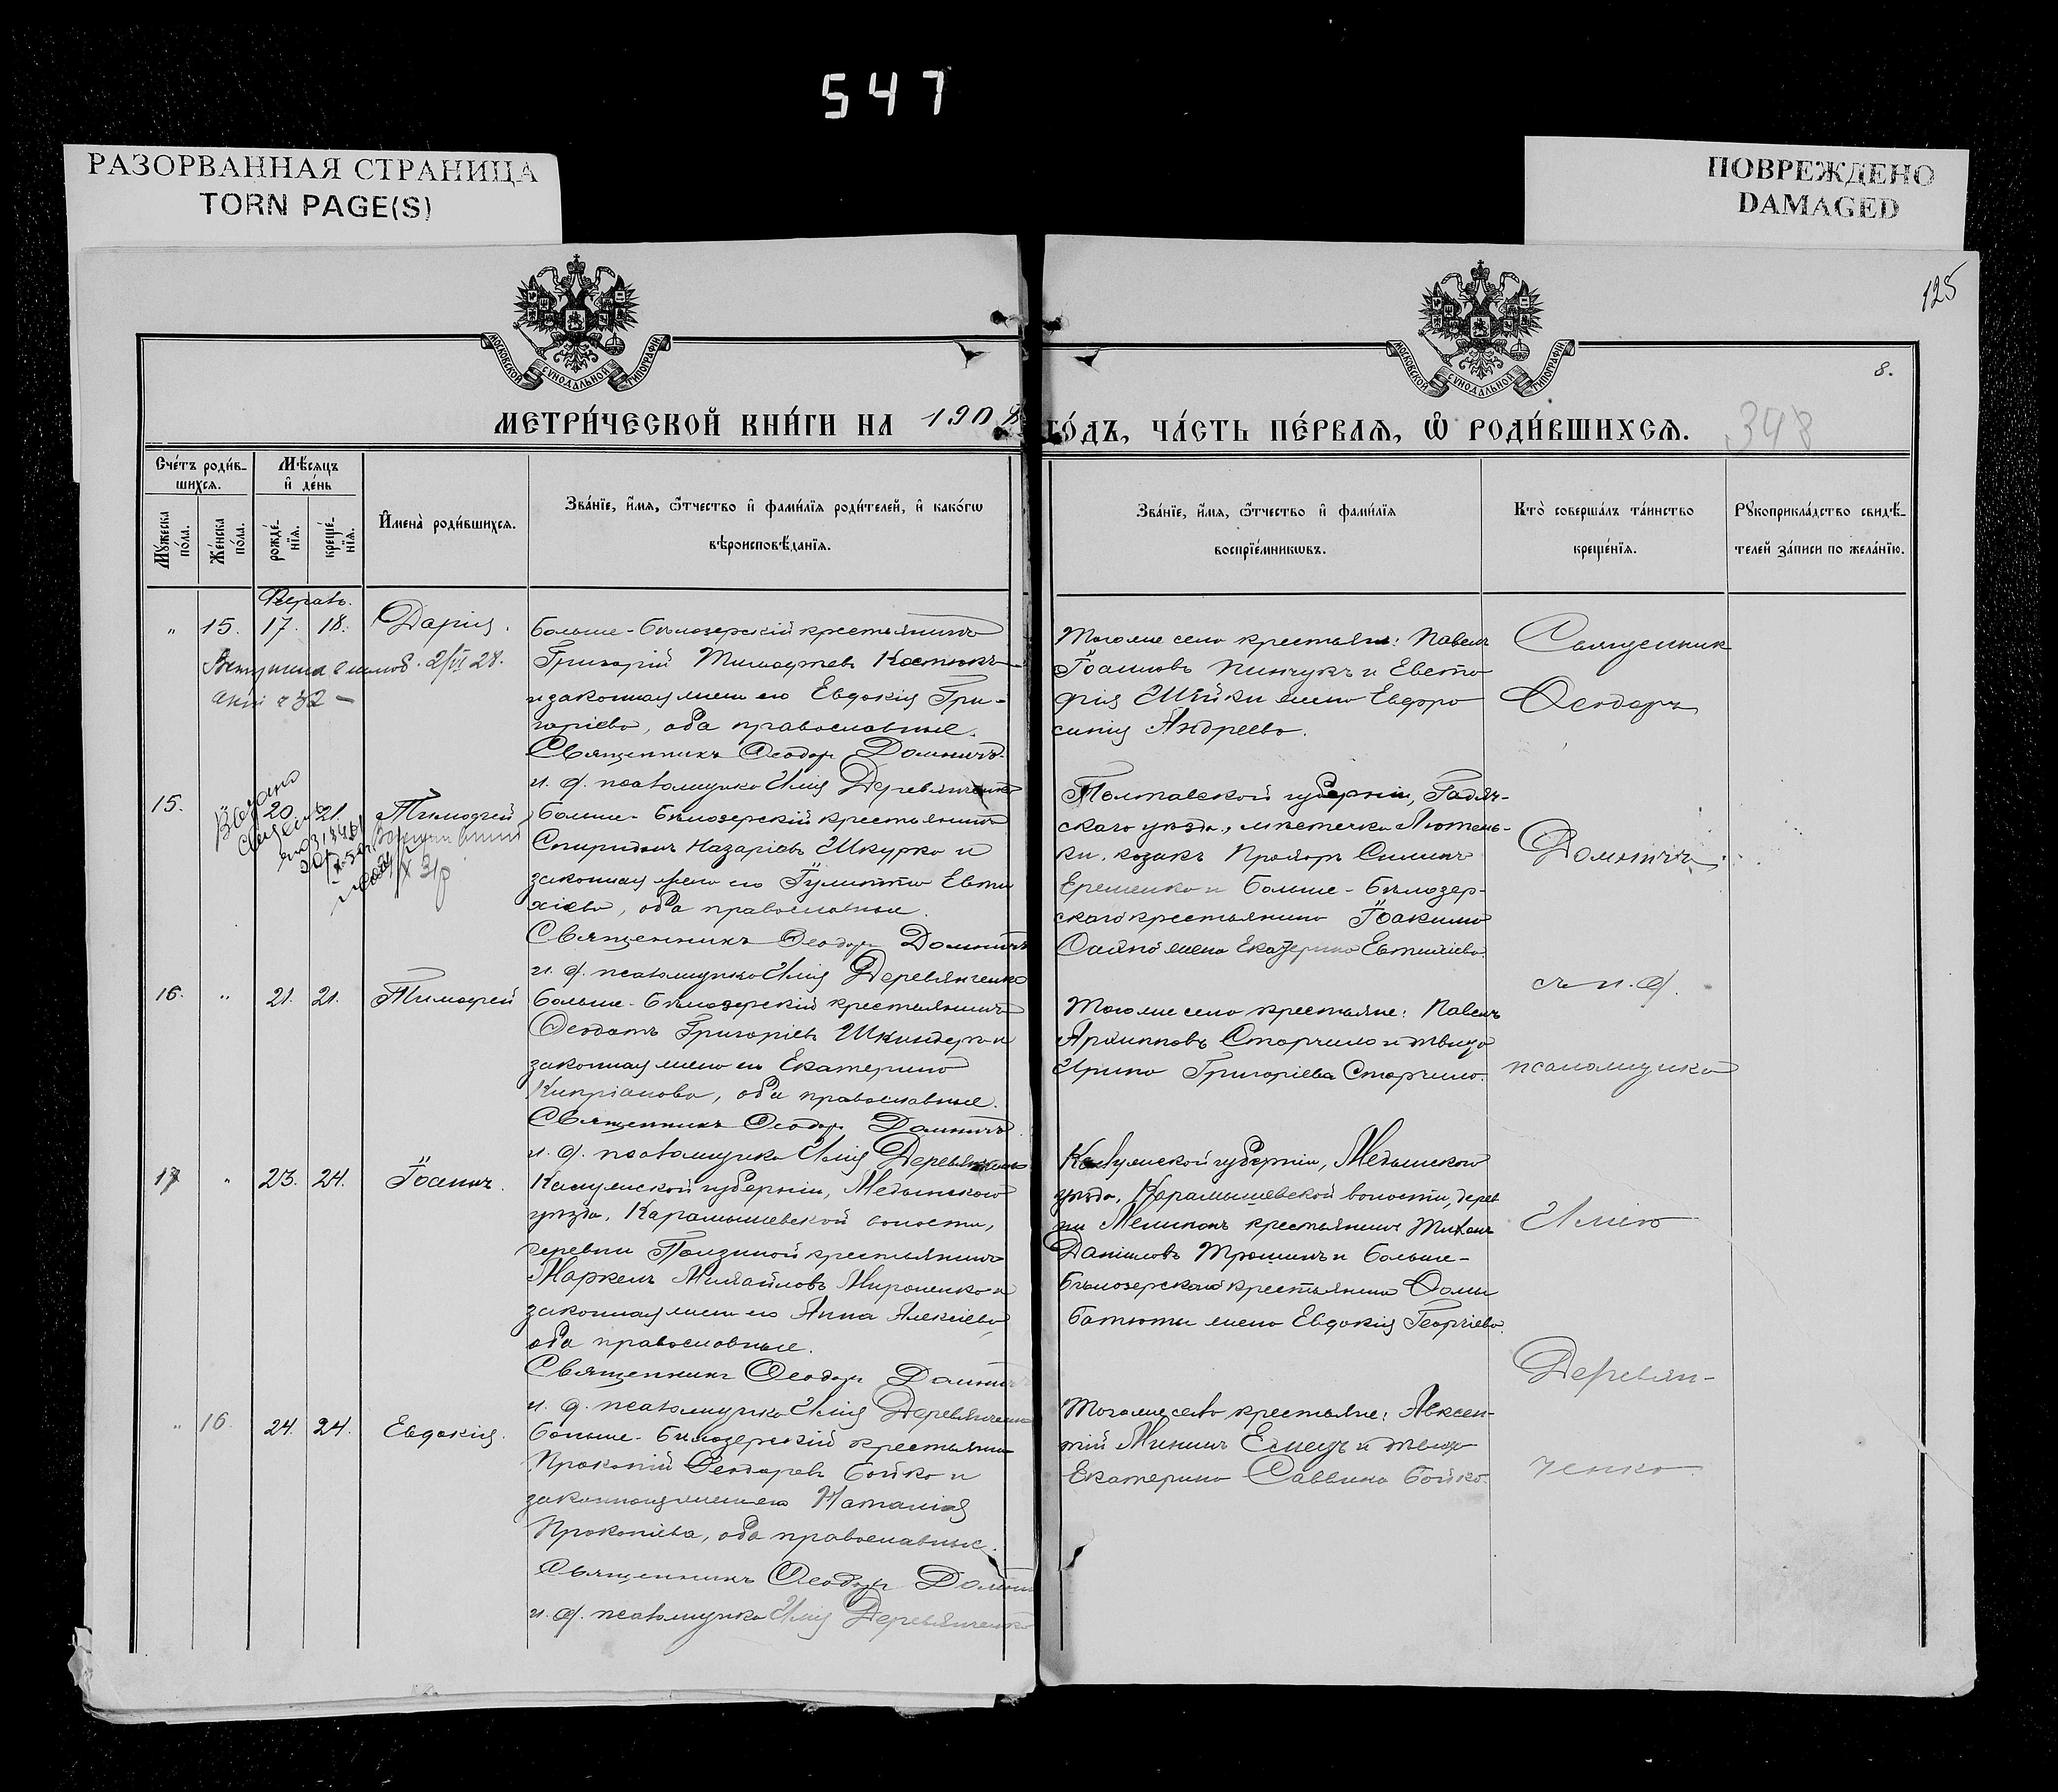 547
РАЗОРВАННАЯ СТРАНИЦА
TORN PAGE(S)
ПОВРЕЖДЕНО
DAMAGED
125
МОСКОВСКОЙ СѴНОДАЛЬНОЙ ТИПОГРАФІИ
МОСКОВСКОЙ СѴНОДАЛЬНОЙ ТИПОГРАФІИ
8.
МЕТРИ́ЧЕСКОЙ КНИ́ГИ НА 1908 ГО́ДЪ, ЧА́СТЬ ПЕ́РВАѦ, Ѡ РОДИ́ВШИХСѦ.
348
Сче́тъ роди́в-
шихсѧ.
Мѣ́сѧцъ
и҆ де́нь
Мꙋ́жеска
по́ла.
Же́нска
по́ла.
рожде́-
нїѧ.
креще́-
нїѧ.
И҆мена̀ роди́вшихсѧ.
Зва́нїе, и҆́мѧ, ѻ҆́тчество и҆ фами́лїѧ роди́телей, и҆ како́гѡ
вѣроисповѣ́данїѧ.
Зва́нїе, и҆́мѧ, ѻ҆́тчество и҆ фами́лїѧ
воспрїе́мникѡвъ.
Кто̀ соверша́лъ та́инство
креще́нїѧ.
Рꙋкоприкла́дство свидѣ́-
телей за́писи по жела́нїю.
Феврал.
" 15. 17. 18. Дарія.
Больше-Бѣлозерскій крестьянинъ
Григорій Тимофѣевъ Костюкъ
и законная жена его Евдокія Гри-
горіева, оба православные.
Священникъ Ѳеодоръ Домничъ
и. д. псаломщика Илія Деревянченко
Того же села крестьяне: Павелъ
Іоанновъ Пинчукъ и Евста
фія Шійки жена Евфро
синія Андреева.
Священник
Ѳеодоръ
15. 20. 21. Тимофей
Больше-Бѣлозерскій крестьянинъ
Спиридонъ Назаріевъ Шкурко и
законная жена его Іулитта Евти
хіева, оба православные.
Священникъ Ѳеодоръ Домничъ
и. д. псаломщика Илія Деревянченко
Полтавской губерніи, Гадяч-
скаго уѣзда, мѣстечка Лютень-
ки, козакъ Прохоръ Симинъ
Еременко и Больше-Бѣлозер-
скаго крестьянина Іоакима
жена Екатерина Евтихіева
Домничъ
съ и. д.
16. " 21. 21. Тимофей
Больше-Бѣлозерскій крестьянинъ
Ѳеодотъ Григоріевъ Шкиндеръ и
законная жена его Екатерина
Кипріанова, оба православные.
Священникъ Ѳеодоръ Домничъ
и. д. псаломщика Илія Деревянченко
Того же села крестьяне: Павелъ
Архиповъ Сторчило и дѣвица
Ирина Григоріева Сторчило.
псаломщика
17 " 23. 24. Іоаннъ.
Калужской губерніи, Медынского
уѣзда, Карамышевской волости,
деревни крестьянинъ
Маркелъ Михайловъ Мироненко и
законная жена его Анна Алексіева,
оба православные.
Священникъ Ѳеодоръ Домничъ
и. д. псаломщика Илія Деревянченко
Калужской губерніи, Медынского
уѣзда, Карамышевской волости, дерев
ни крестьянинъ Тихонъ
Даніиловъ Трошинъ и Больше-
Бѣлозерскаго крестьянина Ѳомы
Батюты жена Евдокія Георгіева.
Иліею
Деревян-
" 16. 24. 24. Евдокія.
Больше-Бѣлозерскій крестьянинъ
Прокопій Ѳеодоровъ Бойко и
законная жена его Наталія
Прокопіева, оба православные.
Священникъ Ѳеодоръ Домничъ
и. д. псаломщика Илія Деревянченко
Того же села крестьяне: Авксен-
тій Мининъ Емецъ и дѣвица
Екатерина Саввина Бойко.
ченко